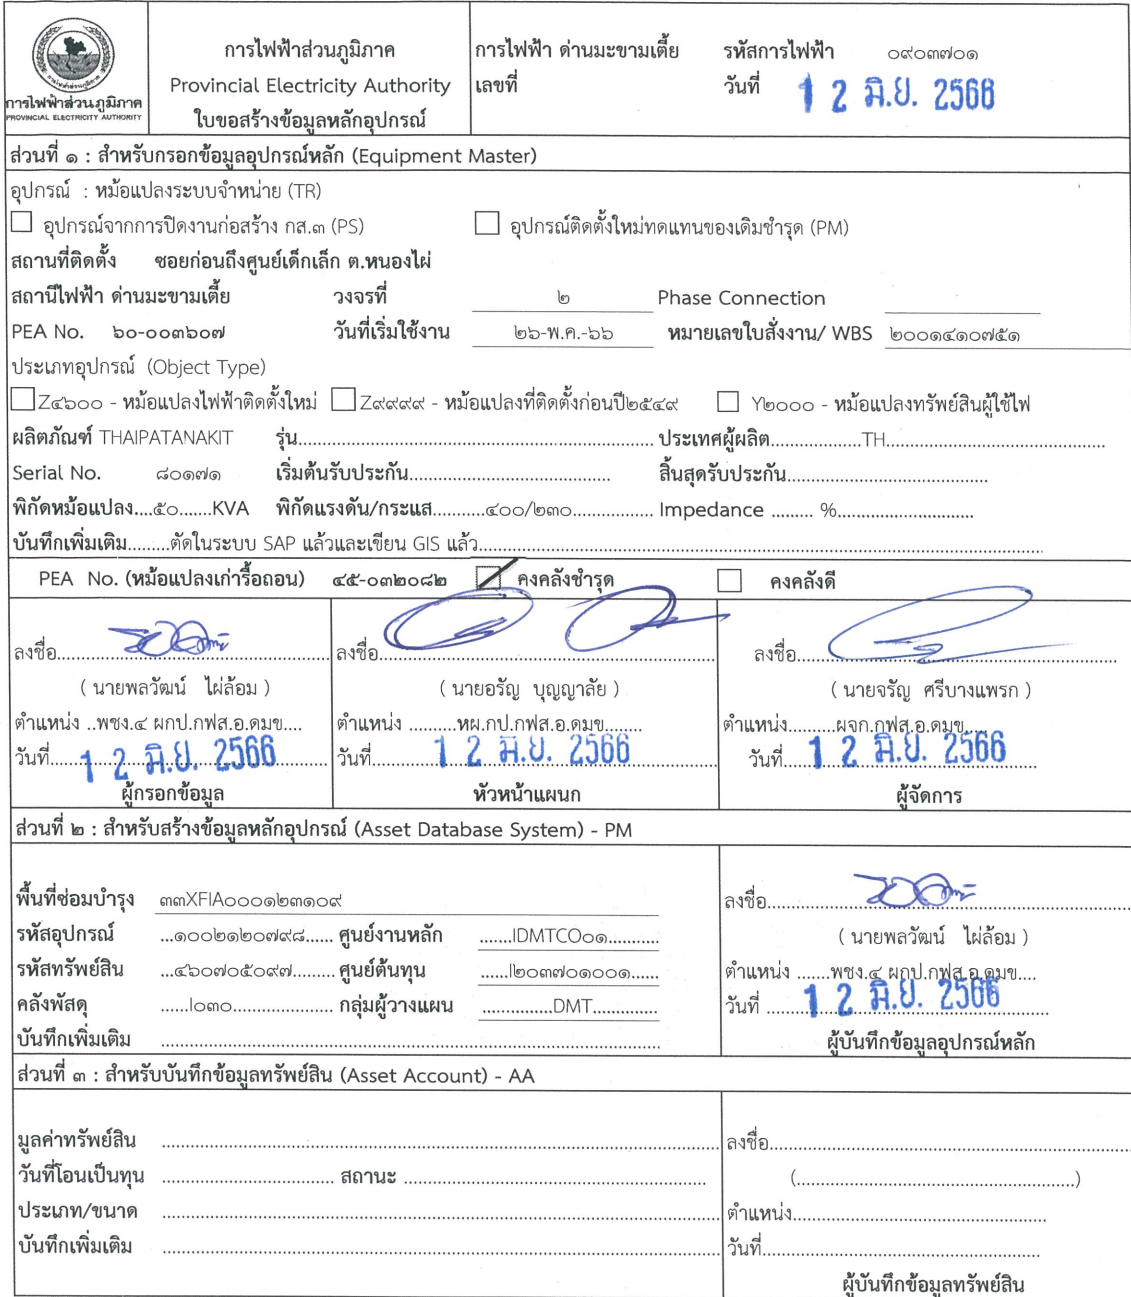 การไฟฟ้าส่วนภูมิภาค
PROVINCIAL ELECTRICITY AUTHORITY
การไฟฟ้าส่วนภูมิภาค
Provincial Electricity Authority
ใบขอสร้างข้อมูลหลักอุปกรณ์
การไฟฟ้า ด่านมะขามเตี้ย รหัสการไฟฟ้า ๐๙๐๓๗๐๑
เลขที่ วันที่ 1 2 มิ.ย. 2566
ส่วนที่ ๑ : สำหรับกรอกข้อมูลอุปกรณ์หลัก (Equipment Master)
อุปกรณ์ : หม้อแปลงระบบจำหน่าย (TR)
อุปกรณ์จากการปิดงานก่อสร้าง กส.๓ (PS) อุปกรณ์ติดตั้งใหม่ทดแทนของเดิมชำรุด (PM)
สถานที่ติดตั้ง ซอยก่อนถึงศูนย์เด็กเล็ก ต.หนองไผ่
สถานีไฟฟ้า ด่านมะขามเตี้ย วงจรที่ ๒ Phase Connection
PEA No. ๖๐-๐๐๓๖๐๗ วันที่เริ่มใช้งาน ๒๖-พ.ค.-๖๖ หมายเลขใบสั่งงาน/ WBS ๒๐๐๑๔๑๐๗๕๑
ประเภทอุปกรณ์ (Object Type)
Z๔๖๐๐ - หม้อแปลงไฟฟ้าติดตั้งใหม่ Z๙๙๙๙ - หม้อแปลงที่ติดตั้งก่อนปี๒๕๔๙ Y๒๐๐๐ - หม้อแปลงทรัพย์สินผู้ใช้ไฟ
ผลิตภัณฑ์ THAIPATANAKIT รุ่น.................... ประเทศผู้ผลิต..................TH....................
Serial No. ๘๐๑๗๑ เริ่มต้นรับประกัน.................... สิ้นสุดรับประกัน....................
พิกัดหม้อแปลง....๕๐.......KVA พิกัดแรงดัน/กระแส...........๔๐๐/๒๓๐............... Impedance ......... %....................
บันทึกเพิ่มเติม.........ตัดในระบบ SAP แล้วและเขียน GIS แล้ว....................
PEA No. (หม้อแปลงเก่ารื้อถอน) ๔๕-๐๓๒๐๘๒ คงคลังชำรุด คงคลังดี
ลงชื่อ.................... ลงชื่อ.................... ลงชื่อ....................
( นายพลวัฒน์ ไผ่ล้อม ) ( นายอรัญ บุญญาลัย ) ( นายจรัญ ศรีบางแพรก )
ตำแหน่ง ..พชง.๔ ผกป.กฟส.อ.ดมข.... ตำแหน่ง .........หผ.กป.กฟส.อ.ดมข...... ตำแหน่ง.........ผจก.กฟส.อ.ดมข.....
วันที่ 1 2 มิ.ย. 2566 วันที่ 1 2 มิ.ย. 2566 วันที่ 1 2 มิ.ย. 2566
ผู้กรอกข้อมูล หัวหน้าแผนก ผู้จัดการ
ส่วนที่ ๒ : สำหรับสร้างข้อมูลหลักอุปกรณ์ (Asset Database System) - PM
พื้นที่ซ่อมบำรุง ๓๓XFIA๐๐๐๑๒๓๑๐๙ ลงชื่อ....................
รหัสอุปกรณ์ ...๑๐๐๒๑๒๐๗๙๘...... ศูนย์งานหลัก .......IDMTCO๐๑........... ( นายพลวัฒน์ ไผ่ล้อม )
รหัสทรัพย์สิน ...๔๖๐๗๐๕๐๙๗......... ศูนย์ต้นทุน ......I๒๐๓๗๐๑๐๐๑...... ตำแหน่ง .......พชง.๔ ผกป.กฟส.อ.ดมข....
คลังพัสดุ ......I๐๓๐.................. กลุ่มผู้วางแผน ...............DMT.............. วันที่ 1 2 มิ.ย. 2566
บันทึกเพิ่มเติม .................... ผู้บันทึกข้อมูลอุปกรณ์หลัก
ส่วนที่ ๓ : สำหรับบันทึกข้อมูลทรัพย์สิน (Asset Account) - AA
มูลค่าทรัพย์สิน .................... ลงชื่อ....................
วันที่โอนเป็นทุน .................... สถานะ .................... (....................)
ประเภท/ขนาด .................... ตำแหน่ง....................
บันทึกเพิ่มเติม .................... วันที่....................
ผู้บันทึกข้อมูลทรัพย์สิน